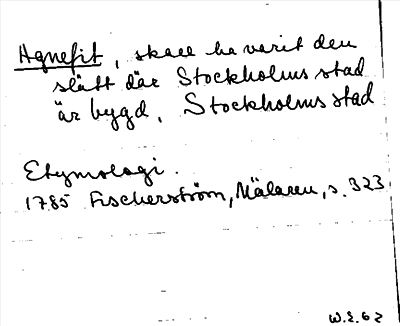 Agnefit, skall ha varit den
slätt där Stockholms stad
är bygd, Stockholms stad
Etymologi.
1785 Fischerström, Mälaren, s. 323.
W.E. 62